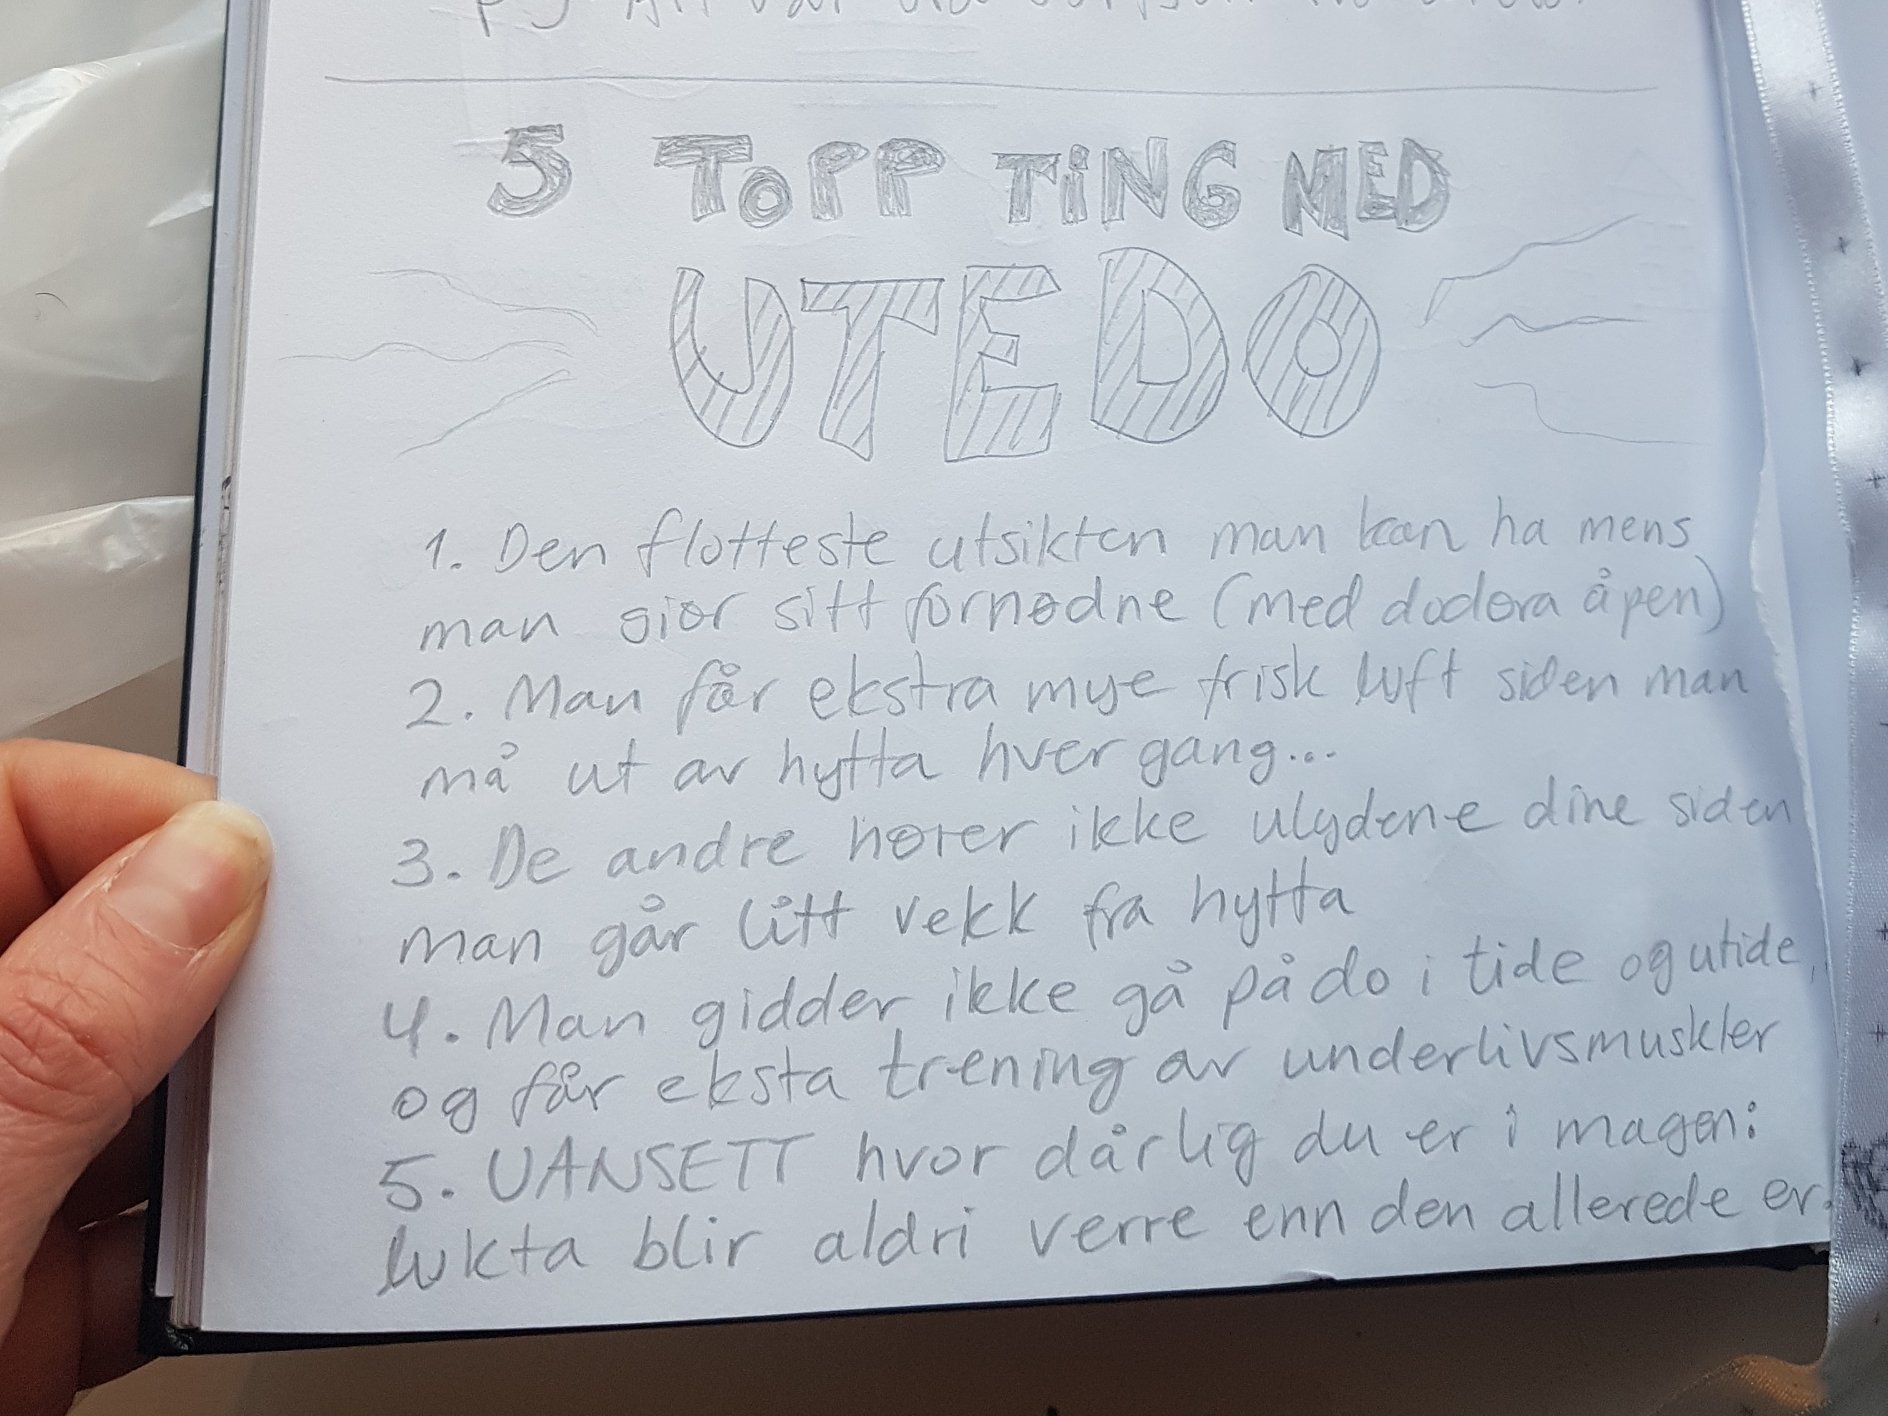 5 TOPP TING MED
UTEDO
1. Den flotteste utsikten man kan ha mens
man gjør sitt fornødne (med dodøra åpen)
2. Man får ekstra mye frisk luft siden man
må ut av hytta hver gang...
3. De andre hører ikke ulydene dine siden
man går litt vekk fra hytta
4. Man gidder ikke gå på do i tide og utide,
og får eksta trening av underlivsmuskler
5. UANSETT hvor dårlig du er i magen:
lukta blir aldri verre enn den allerede er.